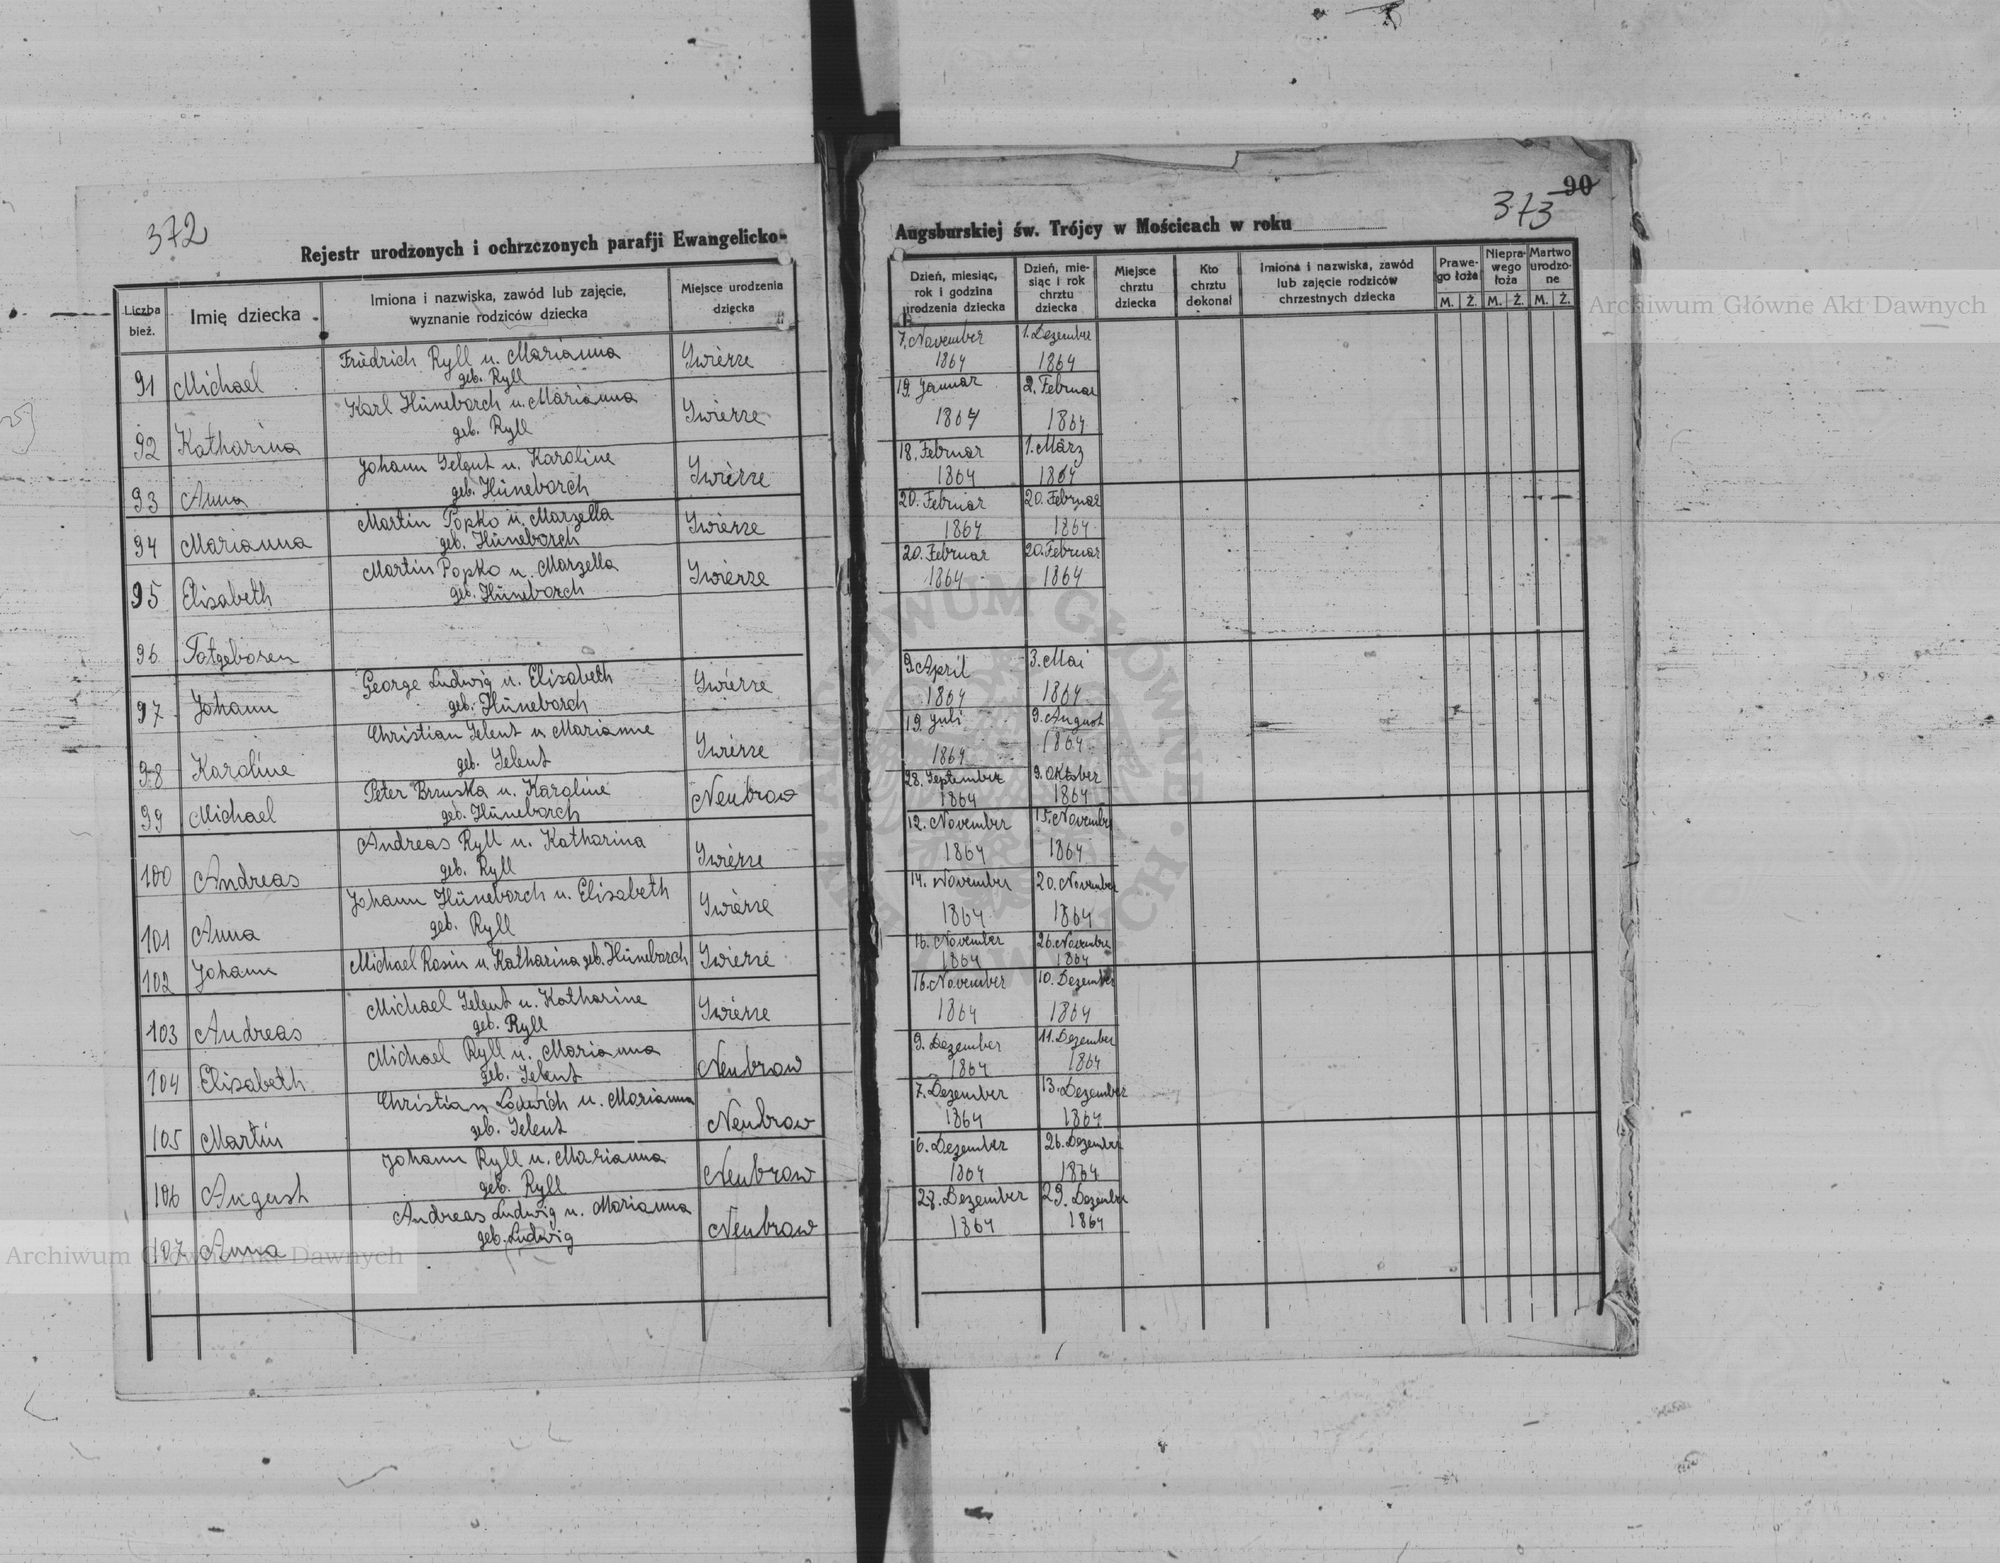 372
90
373
Rejestr urodzonych i ochrzczonych parafji Ewangelicko-
Augsburskiej św. Trójcy w Mościcach w roku
Liczba bież.
Imię dziecka
Imiona i nazwiska, zawód lub zajęcie, wyznanie rodziców dziecka
Miejsce urodzenia dziecka
Dzień, miesiąc, rok i godzina urodzenia dziecka
Dzień, mie-siąc i rok chrztu dziecka
Miejsce chrztu dziecka
Kto chrztu dokonał
Imiona i nazwiska, zawód lub zajęcie rodziców chrzestnych dziecka
Prawe-go łoża
Niepra-wego łoża
Martwo urodzo-ne
M. Ż. M. Ż. M. Ż.
91 Michael Friedrich Ryll u. Marianna geb. Ryll Swierze 7. November 1864 1. Dezember 1864
92 Katharina Karl Hüneborch u. Marianna geb. Ryll Swierze 19. Januar 1864 2. Februar 1864
93 Anna Johann Selent u. Karoline geb. Hüneborch Swierze 18. Februar 1864 1. März 1864
94 Marianna Martin Popko u. Marzella geb. Hüneborch Swierze 20. Februar 1864 20. Februar 1864
95 Elisabeth Martin Popko u. Marzella geb. Hüneborch Swierze 20. Februar 1864 20. Februar 1864
96 Totgeboren
97 Johann George Ludwig u. Elisabeth geb. Hüneborch Swierze 9. April 1864 3. Mai 1864
98 Karoline Christian Selent u. Marianne geb. Selent Swierze 19. Juli 1864 9. August 1864
99 Michael Peter Bruska u. Karoline geb. Hüneborch Neubrow 28. September 1864 9. Oktober 1864
100 Andreas Andreas Ryll u. Katharina geb. Ryll Swierze 12. November 1864 15. November 1864
101 Anna Johann Hüneborch u. Elisabeth geb. Ryll Swierze 14. November 1864 20. November 1864
102 Johann Michael Rosin u. Katharina geb. Hüneborch Swierze 16. November 1864 26. November 1864
103 Andreas Michael Selent u. Katharine geb. Ryll Swierze 16. November 1864 10. Dezember 1864
104 Elisabeth Michael Ryll u. Marianna geb. Selent Neubrow 9. Dezember 1864 11. Dezember 1864
105 Martin Christian Lodwich u. Marianna geb. Selent Neubrow 7. Dezember 1864 13. Dezember 1864
106 August Johann Ryll u. Marianna geb. Ryll Neubrow 6. Dezember 1864 26. Dezember 1864
107 Anna Andreas Ludwig u. Marianna geb. Ludwig Neubrow 28. Dezember 1864 29. Dezember 1864
Archiwum Główne Akt Dawnych
Archiwum Główne Akt Dawnych
ARCHIWUM GŁÓWNE AKT DAWNYCH